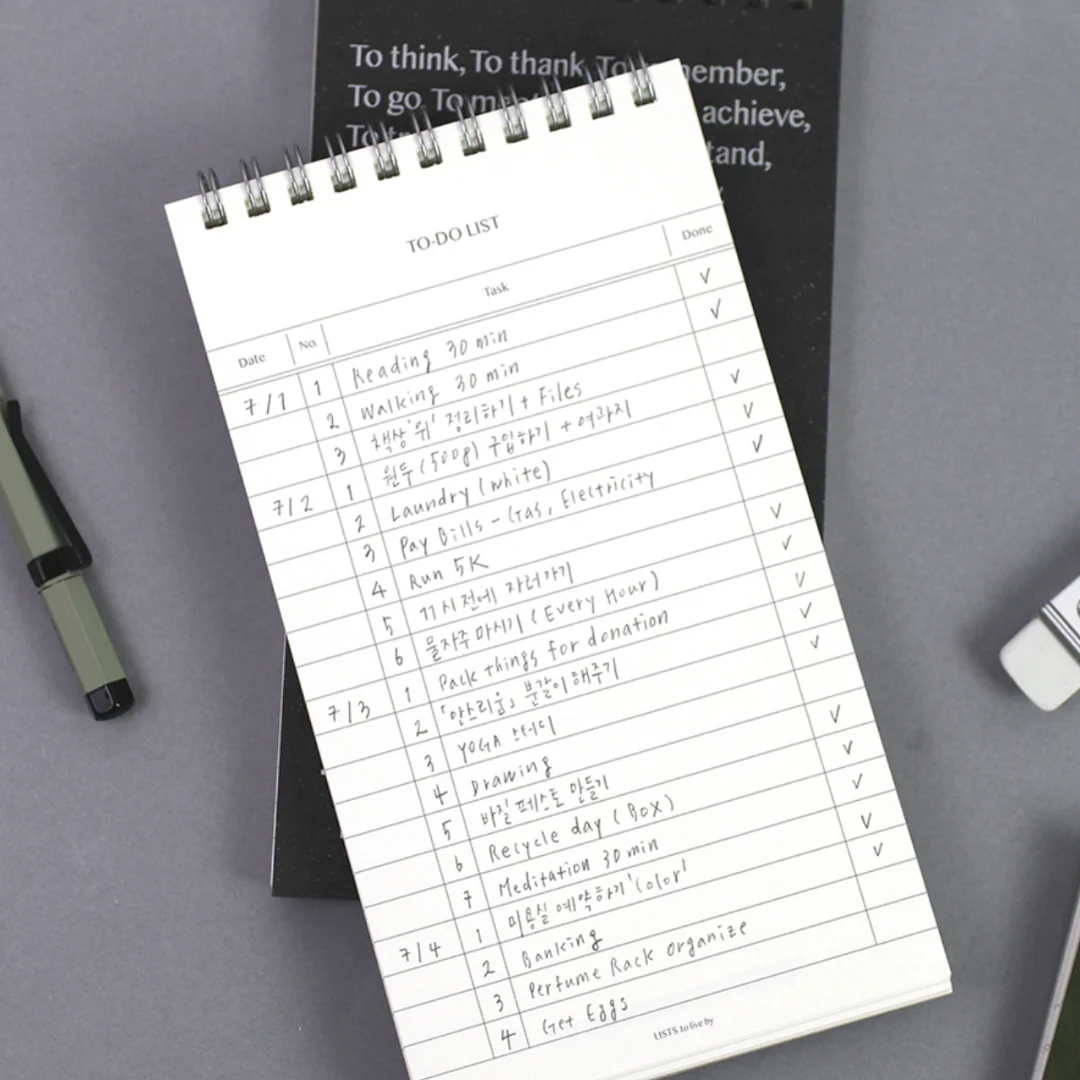 To think, To thank, To remember,
To go, To m
achieve,
To
tand,
TO-DO LIST
Date No. Task Done
7/1 1 Reading 30 min ✓
2 Walking 30 min ✓
3 책상 '위' 정리하기 + Files
7/2 1 원두 (500g) 구입하기 + 여과지 ✓
2 Laundry (white) ✓
3 Pay Bills - Gas, Electricity ✓
4 Run 5K
5 11시 전에 자러가기 ✓
6 물 자주 마시기 (Every Hour) ✓
7/3 1 Pack things for donation ✓
2 「안스리움」 분갈이 해주기 ✓
3 YOGA 스터디 ✓
4 Drawing
5 바질 페스토 만들기 ✓
6 Recycle day (Box) ✓
7 Meditation 30 min ✓
7/4 1 미용실 예약하기 'Color' ✓
2 Banking ✓
3 Perfume Rack Organize
4 Get Eggs
LISTS to live by